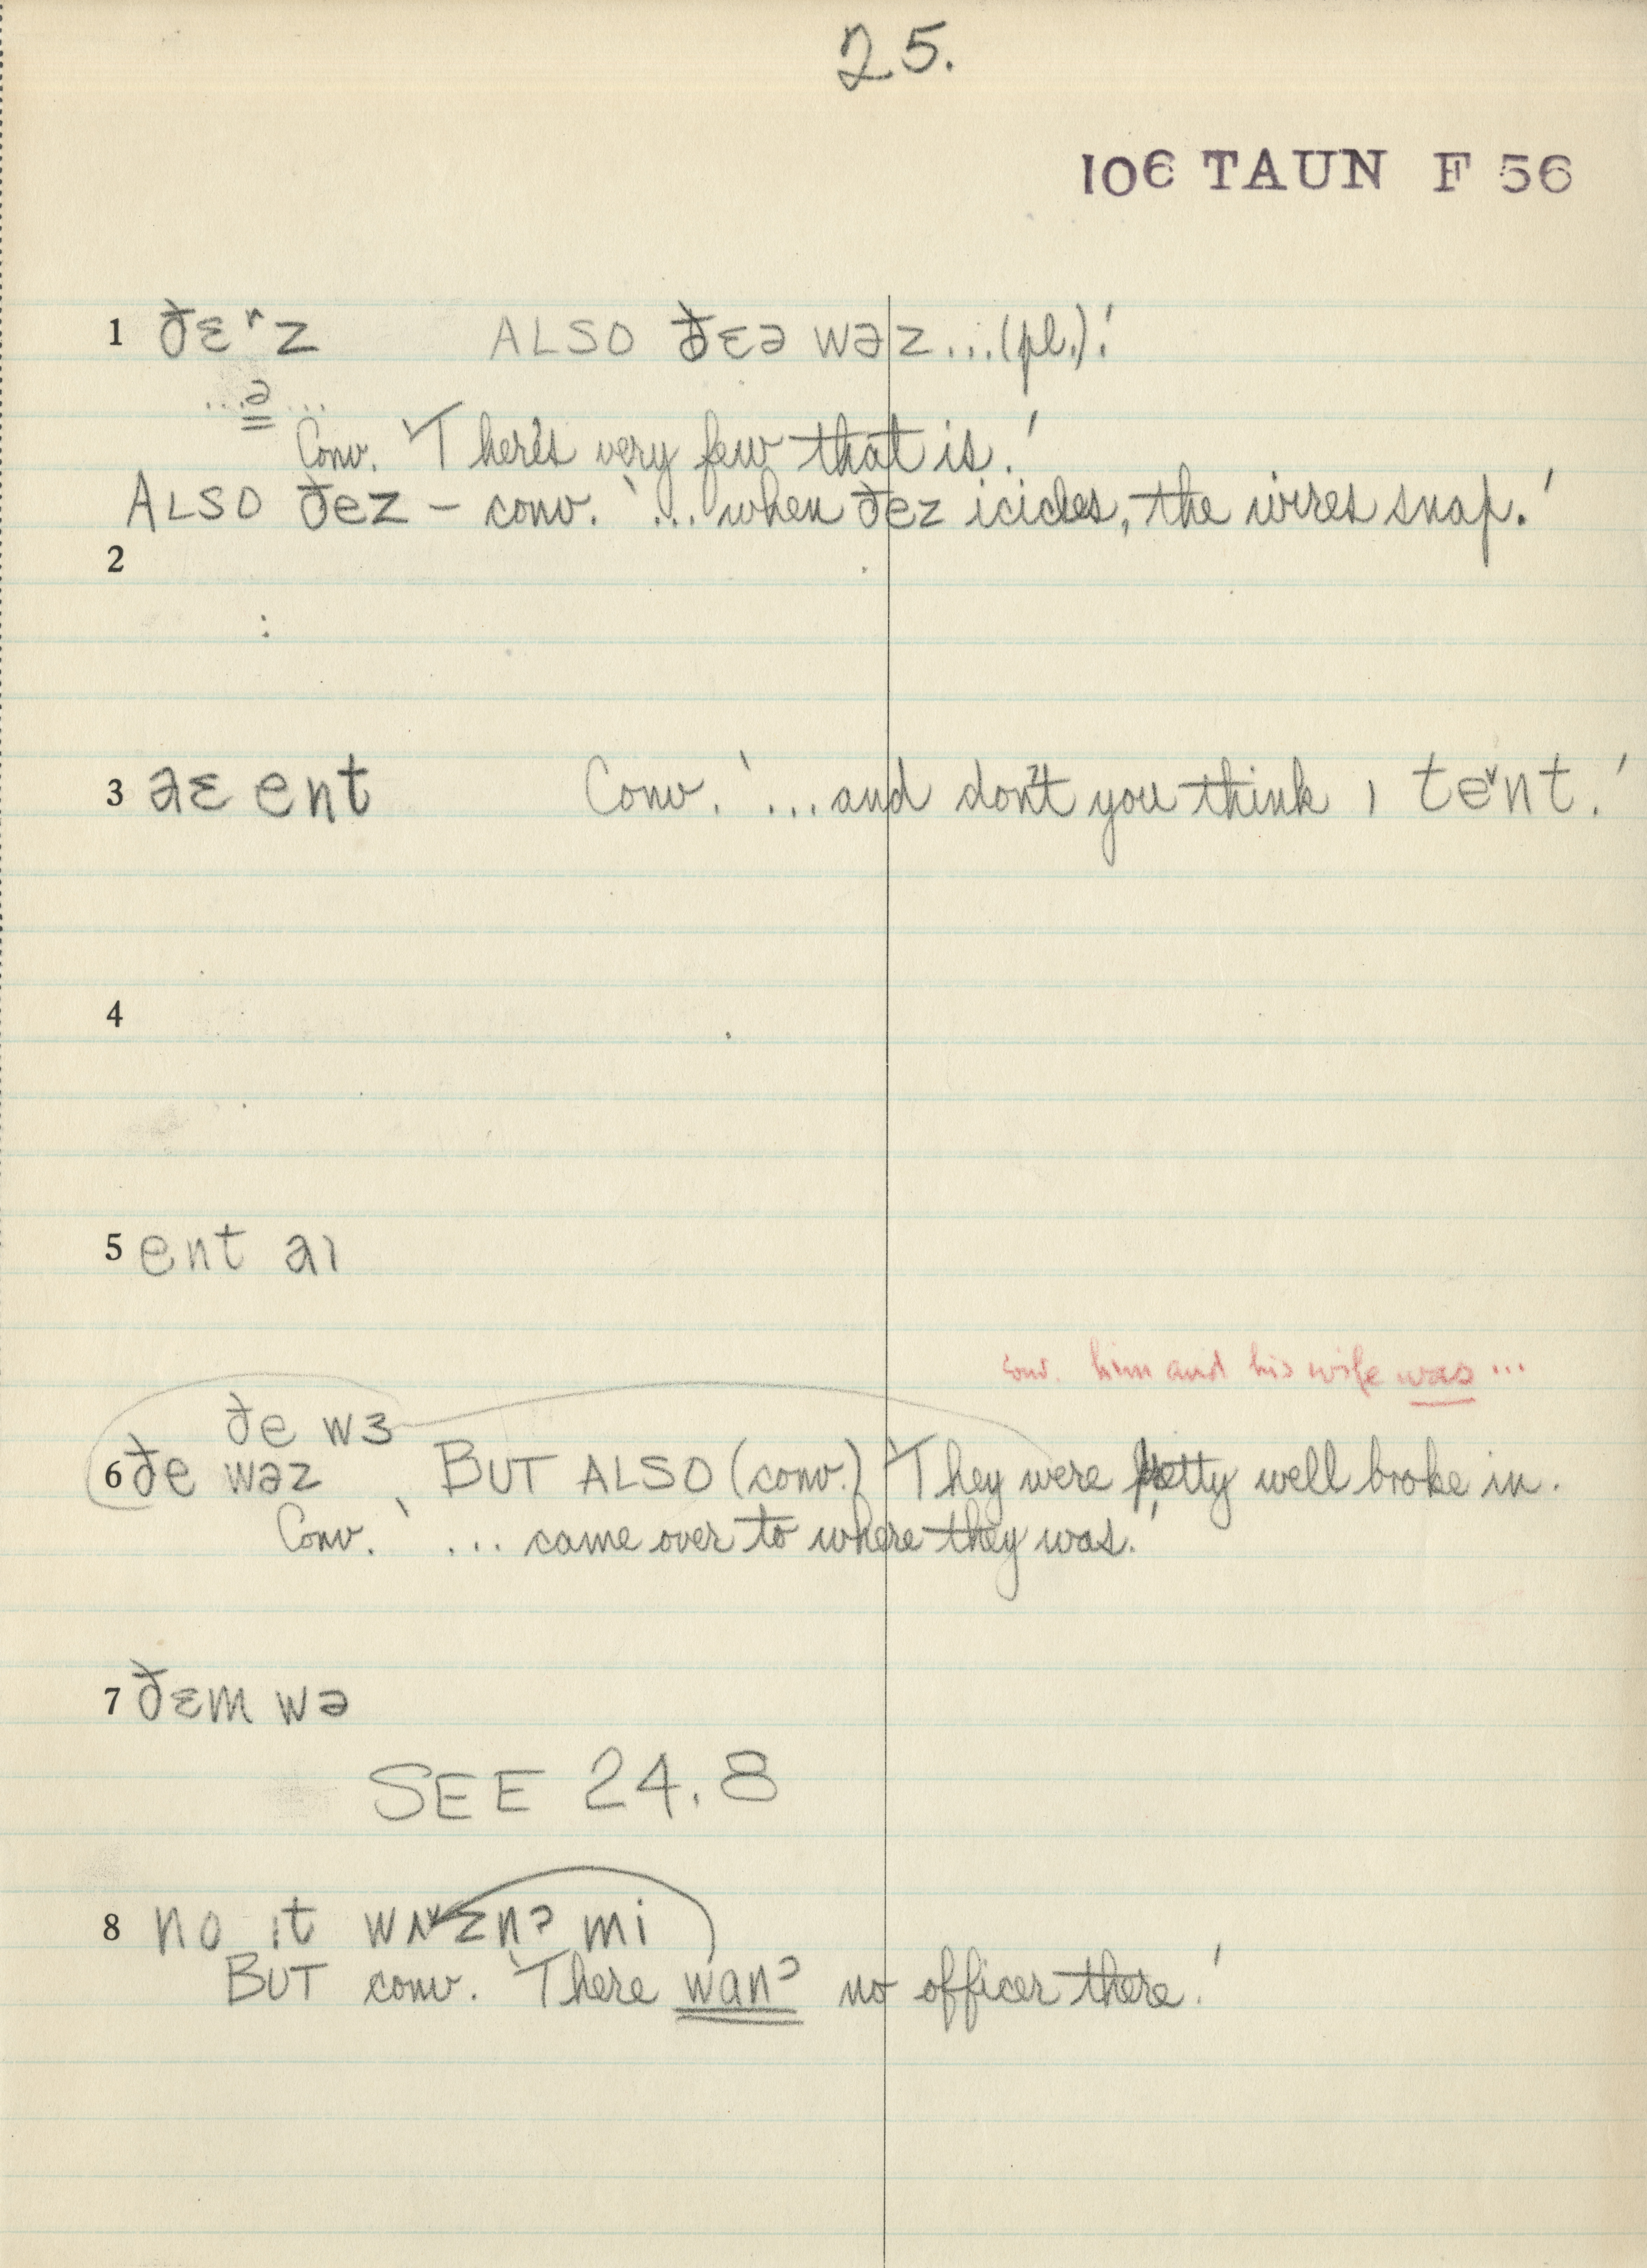 25.
106 TAUN F 56
1 ðɛ˄z ALSO ðɛə wəz...(pl.)!
...ə...
Conv. 'There's very few that is.'
ALSO ðez – conv. '...when ðez icicles, the wires snap.'
2
3 ent Conv. '...and don't you think ɪ te˅nt.'
4
5 ent aɪ
conv. him and his wife was ...
ðe wɜ
6 ðe wəz BUT ALSO (conv.) 'They were pretty well broke in.
Conv. '... came over to where they was.'
7 ðɛm wə
SEE 24.8
8 no ɪt mi
BUT conv. 'There wanʔ no officer there.'